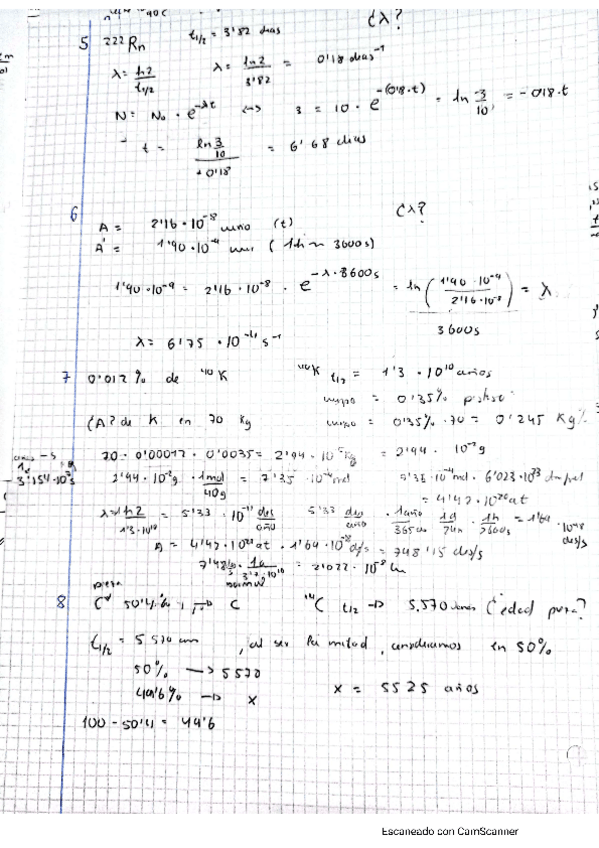 ¿λ?
5 ²²²Rn t₁/₂ = 3'82 días
λ = ln2 / t₁/₂ λ = ln2 / 3'82 = 0'18 días⁻¹
N = N₀ · e^-λt ↔ 3 = 10 · e^-(0'18·t) = ln 3/10 = -0'18·t
t = ln 3/10 / -0'18 = 6'68 días
6 ¿λ?
A = 2'16 · 10⁻⁸ (t)
A' = 1'90 · 10⁻⁹ (3600s)
1'90 · 10⁻⁹ = 2'16 · 10⁻⁸ · e^-λ·3600s = ln (1'90 · 10⁻⁹ / 2'16 · 10⁻⁸) / 3600s = λ
λ = 6'75 · 10⁻⁴ s⁻¹
7 0'012% de ⁴⁰K ⁴⁰K t₁/₂ = 1'3 · 10¹⁰ años
= 0'35%
¿A? de K en 70 kg = 0'35% · 70 = 0'245 Kg
70 · 0'00012 · 0'0035 = 2'94 · 10⁻⁵ kg = 2'94 · 10⁻²g
3'154·10⁷s 2'94 · 10⁻²g · 1mol / 40g = 7'35 · 10⁻⁴ mol · 6'023·10²³
= 4'42 · 10²⁰ at
λ = ln2 / 1'3·10¹⁰ = 5'33 · 10⁻¹¹ des/año 5'33 des/año · 1año / 365días · 1d / 24h · 1h / 3600s = 1'69 · 10⁻¹⁸ des/s
A = 4'42·10²⁰ at · 1'69 · 10⁻¹⁸ d/s = 748'15 des/s
= 2'022 · 10⁻⁸
8 50'4% C ¹⁴C t₁/₂ → 5.570 años ¿edad
t₁/₂ = 5570 , al ser la mitad, consideramos en 50%
50% → 5570
49'6% → x x = 5525 años
100 - 50'4 = 49'6
Escaneado con CamScanner